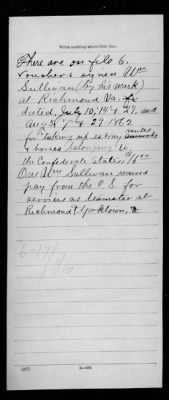 Write nothing above this line.
There are on file 6.
vouchers signed Wm
Sullivan (by his mark)
at Richmond Va.
dated, July 10, 14 & 27, and
Aug 3d 7th & 29 1862
for taking up estray mules
& horses belonging to
the Confederate States,
One Wm Sullivan received
pay from the C. S. for
services as teamster at
Richmond & Yorktown,